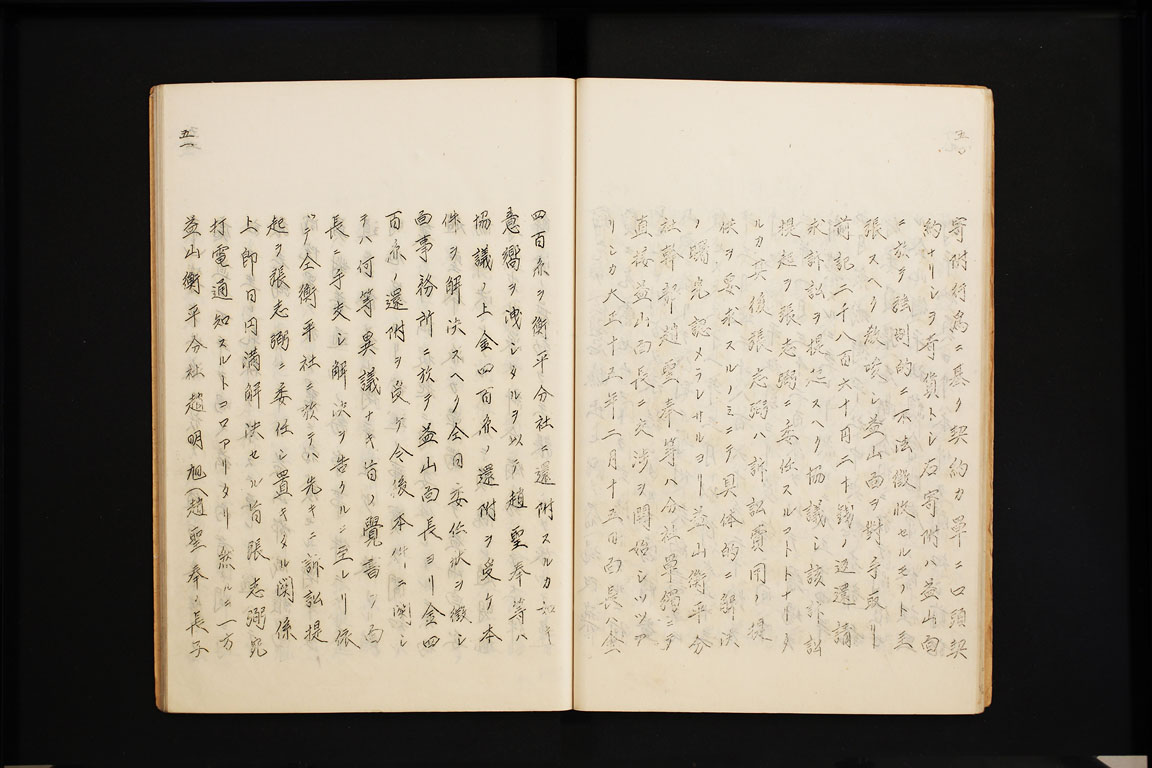 五〇
寄附行爲ニ基ク契約カ單ニ口頭契
約ナリシヲ奇貨トシ右寄附ハ益山面
ニ於テ強制的ニ不法徵收セルモノト主
張スヘク敎唆シ益山面ヲ對手取リ
前記二千八百六十円二十錢ノ返還請
求訴訟ヲ提起スヘク協議シ該訴訟
提起ヲ張志弼ニ委任スルコトトナリタ
ルカ其後張志弼ハ訴訟費用ノ提
供ヲ要求スルノミニテ具体的ニ解決
ノ曙光認メラレサルヨリ益山衡平分
社幹部趙聖奉等ハ分社單獨ニテ
直接益山面長ニ交渉ヲ開始シツツア
リシカ大正十五年二月十五日面長ハ金
五一
四百余ヲ衡平分社ニ還附スルカ如キ
意嚮ヲ洩シタルヲ以テ趙聖奉等ハ
協議ノ上金四百余ノ還附ヲ受ケ本
件ヲ解決スヘク仝日委任狀ヲ徵シ
面事務所ニ於テ益山面長ヨリ金四
百余ノ還附ヲ受ケ今後本件ニ関シ
テハ何等異議ナキ旨ノ覺書ヲ面
長ニ手交シ解決ヲ告クルニ至レリ依
ツテ仝衡平社ニ於テハ先キニ訴訟提
起ヲ張志弼ニ委任シ置キタル関係
上即日円満解決セル旨張志弼宛
打電通知スルトコロアリタリ 然ルニ一方
益山衡平分社趙明旭(趙聖奉ノ長子